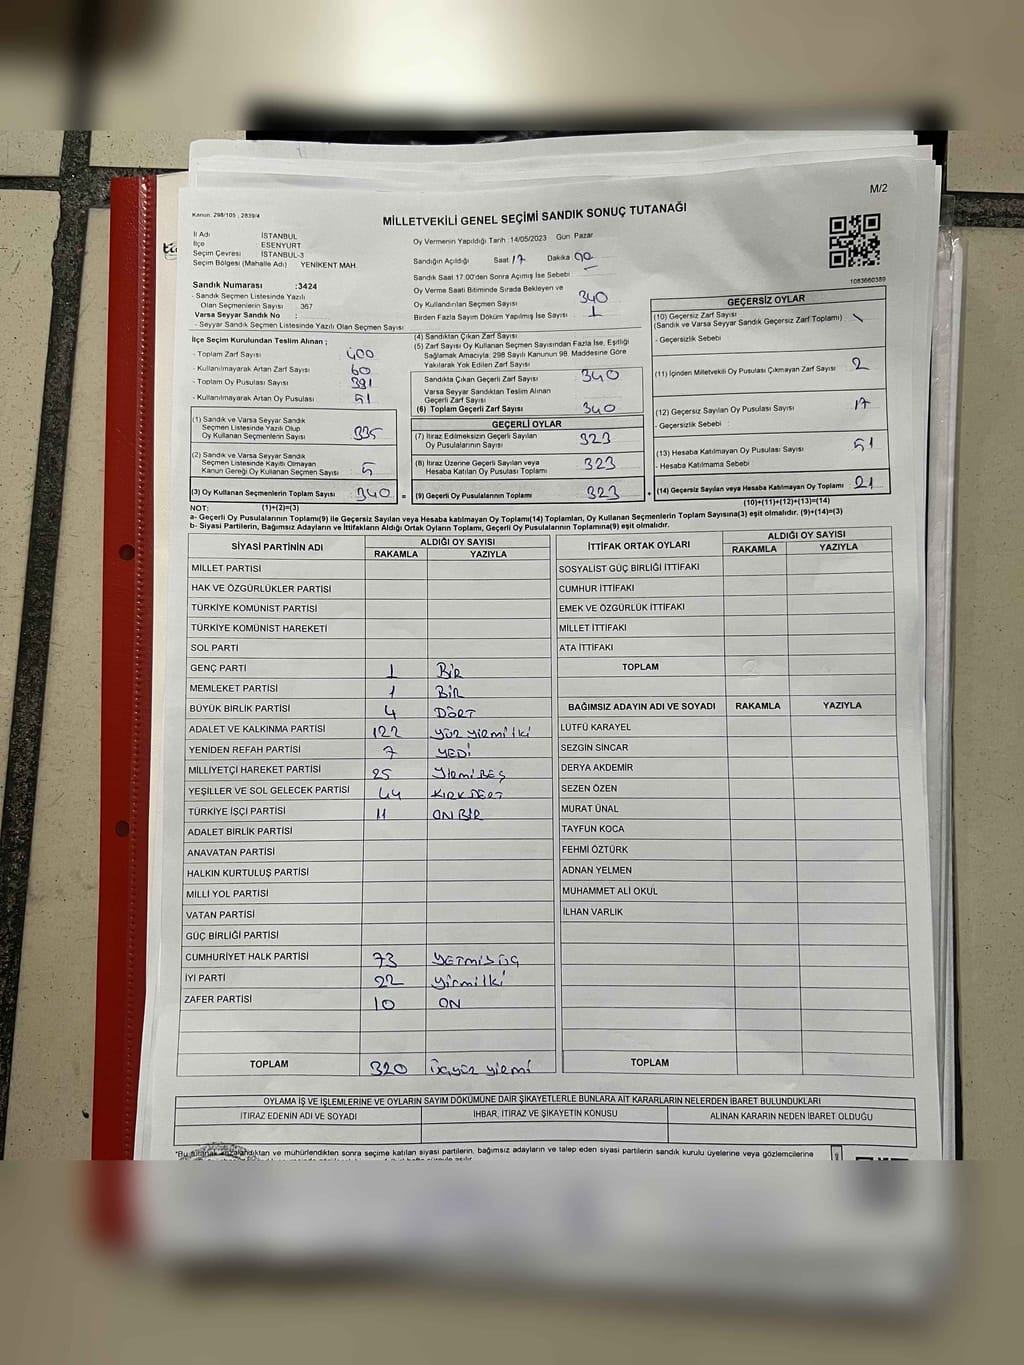 M/2
Kanun: 298/105 , 2839/4
MİLLETVEKİLİ GENEL SEÇİMİ SANDIK SONUÇ TUTANAĞI
İl Adı İSTANBUL
İlçe ESENYURT
Seçim Çevresi İSTANBUL-3
Seçim Bölgesi (Mahalle Adı) YENİKENT MAH.
Sandık Numarası :3424
- Sandık Seçmen Listesinde Yazılı
Olan Seçmenlerin Sayısı : 367
Varsa Seyyar Sandık No :
- Seyyar Sandık Seçmen Listesinde Yazılı Olan Seçmen Sayısı :
Oy Vermenin Yapıldığı Tarih :14/05/2023 Gün Pazar
Sandığın Açıldığı Saat 17 Dakika 00
Sandık Saat 17.00'den Sonra Açılmış İse Sebebi :
Oy Verme Saati Bitiminde Sırada Bekleyen ve
Oy Kullandırılan Seçmen Sayısı 340
Birden Fazla Sayım Döküm Yapılmış İse Sayısı : 1
1083660389
İlçe Seçim Kurulundan Teslim Alınan ;
- Toplam Zarf Sayısı : 400
- Kullanılmayarak Artan Zarf Sayısı : 60
- Toplam Oy Pusulası Sayısı : 391
- Kullanılmayarak Artan Oy Pusulası : 51
(1) Sandık ve Varsa Seyyar Sandık
Seçmen Listesinde Yazılı Olup
Oy Kullanan Seçmenlerin Sayısı : 335
(2) Sandık ve Varsa Seyyar Sandık
Seçmen Listesinde Kayıtlı Olmayan
Kanun Gereği Oy Kullanan Seçmen Sayısı : 5
(3) Oy Kullanan Seçmenlerin Toplam Sayısı : 340 =
(4) Sandıktan Çıkan Zarf Sayısı :
(5) Zarf Sayısı Oy Kullanan Seçmen Sayısından Fazla İse, Eşitliği
Sağlamak Amacıyla; 298 Sayılı Kanunun 98. Maddesine Göre
Yakılarak Yok Edilen Zarf Sayısı
Sandıkta Çıkan Geçerli Zarf Sayısı : 340
Varsa Seyyar Sandıktan Teslim Alınan
Geçerli Zarf Sayısı
(6) Toplam Geçerli Zarf Sayısı : 340
GEÇERLİ OYLAR
(7) İtiraz Edilmeksizin Geçerli Sayılan
Oy Pusulalarının Sayısı : 323
(8) İtiraz Üzerine Geçerli Sayılan veya
Hesaba Katılan Oy Pusulası Toplamı : 323
(9) Geçerli Oy Pusulalarının Toplamı : 323 +
GEÇERSİZ OYLAR
(10) Geçersiz Zarf Sayısı
(Sandık ve Varsa Seyyar Sandık Geçersiz Zarf Toplamı) :
- Geçersizlik Sebebi
(11) İçinden Milletvekili Oy Pusulası Çıkmayan Zarf Sayısı : 2
(12) Geçersiz Sayılan Oy Pusulası Sayısı : 17
- Geçersizlik Sebebi :
(13) Hesaba Katılmayan Oy Pusulası Sayısı : 51
- Hesaba Katılmama Sebebi :
(14) Geçersiz Sayılan veya Hesaba Katılmayan Oy Toplamı : 21
NOT: (1)+(2)=(3)
(10)+(11)+(12)+(13)=(14)
a- Geçerli Oy Pusulalarının Toplamı(9) ile Geçersiz Sayılan veya Hesaba katılmayan Oy Toplamı(14) Toplamları, Oy Kullanan Seçmenlerin Toplam Sayısına(3) eşit olmalıdır. (9)+(14)=(3)
b- Siyasi Partilerin, Bağımsız Adayların ve İttifakların Aldığı Ortak Oyların Toplamı, Geçerli Oy Pusulalarının Toplamına(9) eşit olmalıdır.
SİYASİ PARTİNİN ADI ALDIĞI OY SAYISI
RAKAMLA YAZIYLA
MİLLET PARTİSİ
HAK VE ÖZGÜRLÜKLER PARTİSİ
TÜRKİYE KOMÜNİST PARTİSİ
TÜRKİYE KOMÜNİST HAREKETİ
SOL PARTİ
GENÇ PARTİ 1 BİR
MEMLEKET PARTİSİ 1 BİR
BÜYÜK BİRLİK PARTİSİ 4 DÖRT
ADALET VE KALKINMA PARTİSİ 122 yüz yirmi iki
YENİDEN REFAH PARTİSİ 7 YEDİ
MİLLİYETÇİ HAREKET PARTİSİ 25 YirmiBEŞ
YEŞİLLER VE SOL GELECEK PARTİSİ 44 KIRKDÖRT
TÜRKİYE İŞÇİ PARTİSİ 11 ONBİR
ADALET BİRLİK PARTİSİ
ANAVATAN PARTİSİ
HALKIN KURTULUŞ PARTİSİ
MİLLİ YOL PARTİSİ
VATAN PARTİSİ
GÜÇ BİRLİĞİ PARTİSİ
CUMHURİYET HALK PARTİSİ 73 YETMİŞ ÜÇ
İYİ PARTİ 22 yirmi iki
ZAFER PARTİSİ 10 ON
TOPLAM 320 üçyüz yirmi
İTTİFAK ORTAK OYLARI ALDIĞI OY SAYISI
RAKAMLA YAZIYLA
SOSYALİST GÜÇ BİRLİĞİ İTTİFAKI
CUMHUR İTTİFAKI
EMEK VE ÖZGÜRLÜK İTTİFAKI
MİLLET İTTİFAKI
ATA İTTİFAKI
TOPLAM
BAĞIMSIZ ADAYIN ADI VE SOYADI RAKAMLA YAZIYLA
LÜTFÜ KARAYEL
SEZGİN SİNCAR
DERYA AKDEMİR
SEZEN ÖZEN
MURAT ÜNAL
TAYFUN KOCA
FEHMİ ÖZTÜRK
ADNAN YELMEN
MUHAMMET ALİ OKUL
İLHAN VARLIK
TOPLAM
OYLAMA İŞ VE İŞLEMLERİNE VE OYLARIN SAYIM DÖKÜMÜNE DAİR ŞİKAYETLERLE BUNLARA AİT KARARLARIN NELERDEN İBARET BULUNDUKLARI
İTİRAZ EDENİN ADI VE SOYADI İHBAR, İTİRAZ VE ŞİKAYETİN KONUSU ALINAN KARARIN NEDEN İBARET OLDUĞU
*Bu tutanak imzalandıktan ve mühürlendikten sonra seçime katılan siyasi partilerin, bağımsız adayların ve talep eden siyasi partilerin sandık kurulu üyelerine veya gözlemcilerine